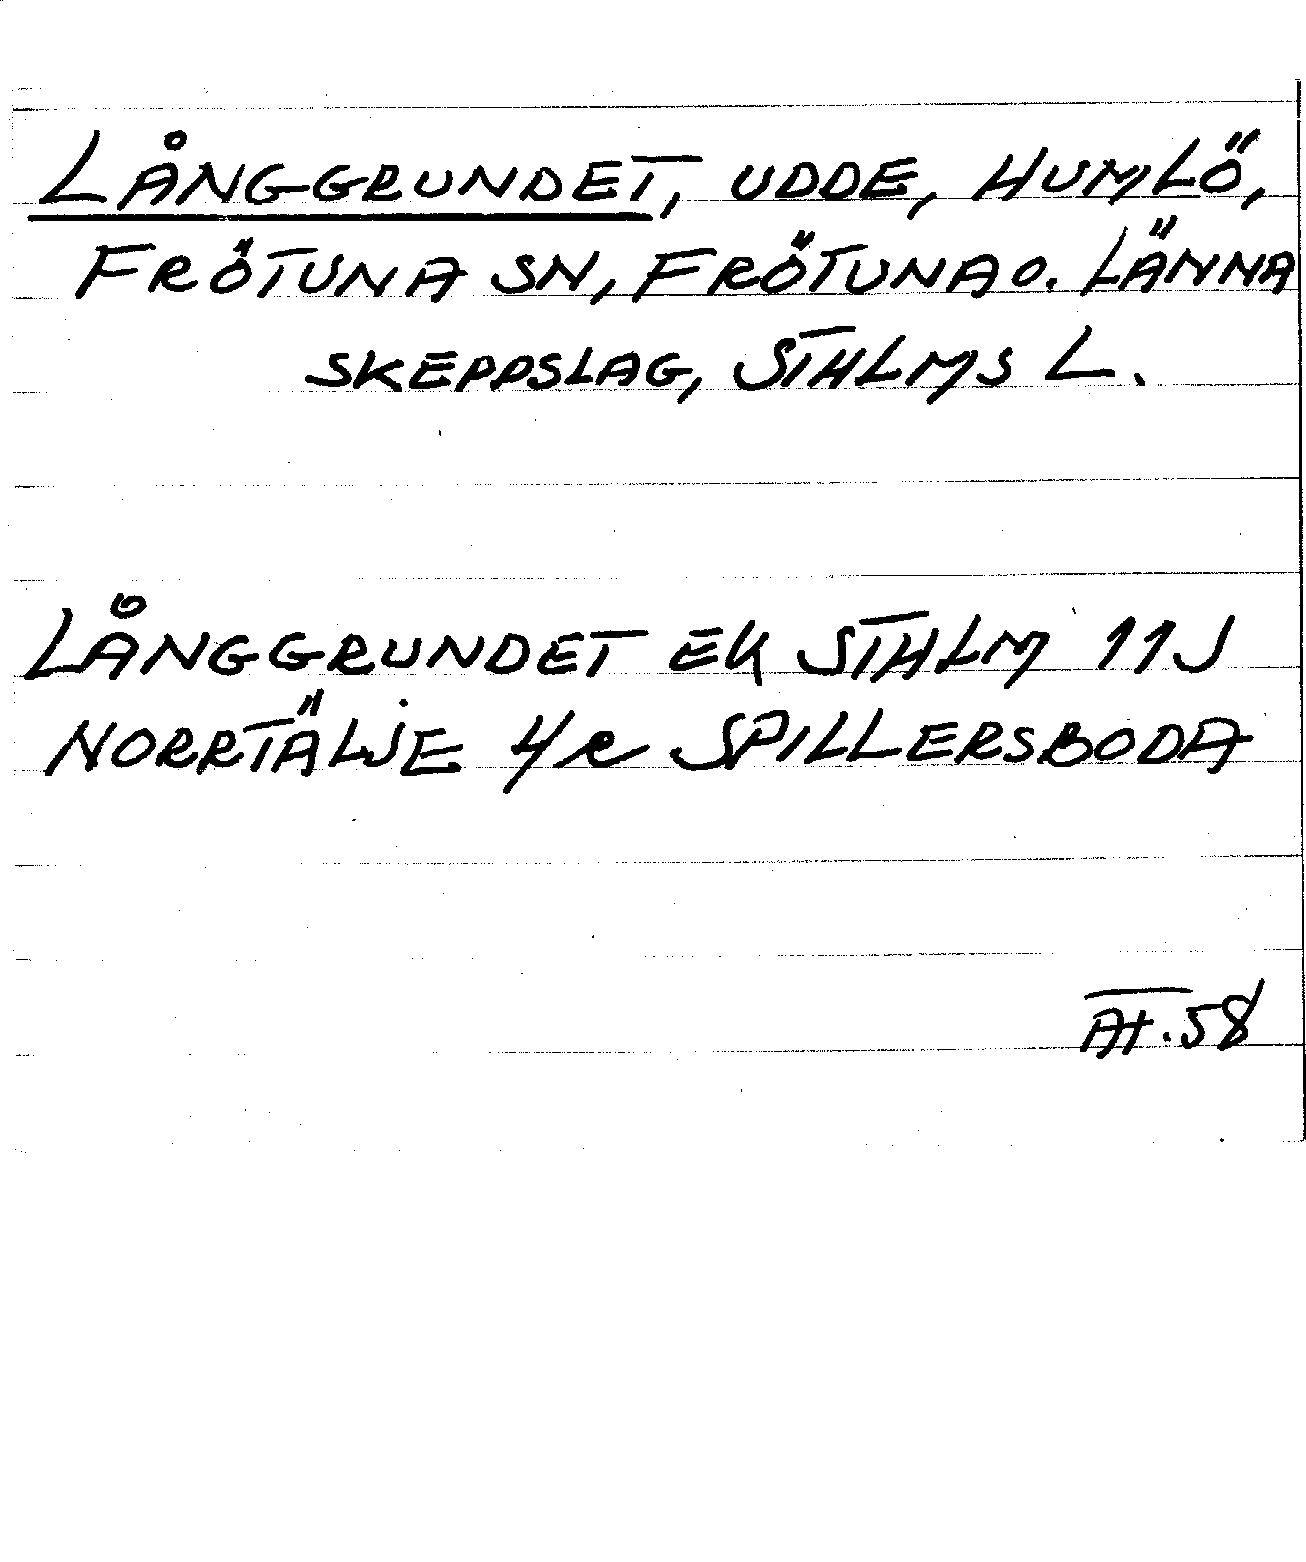 LÅNGGRUNDET, UDDE, HUMLÖ,
FRÖTUNA SN, FRÖTUNA O. LÄNNA
SKEPPSLAG, STHLMS L.
LÅNGGRUNDET EK STHLM 11J
NORRTÄLJE SPILLERSBODA
AH.58